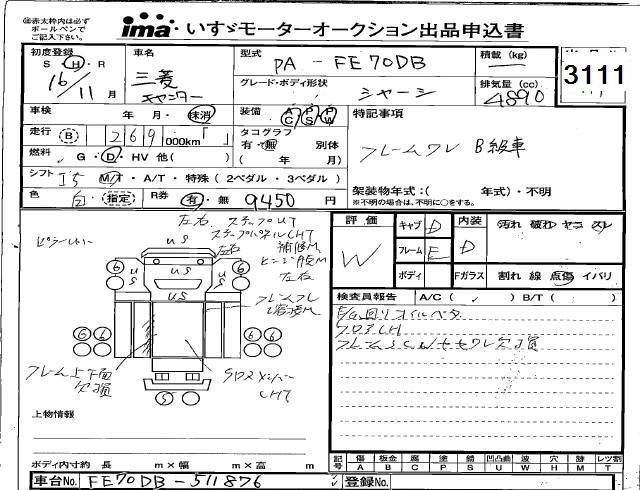 ㊟赤太枠内は必ず
ボールペンで
ご記入下さい。
ima いすゞモーターオークション出品申込書
初度登録
S・H・R
16/11月
車名
三菱
キャンター
型式
PA-FE70DB
グレード・ボディ形状
シャーシ
積載(kg)
排気量(cc)
4890
3111
車検
年・月・抹消
装備
AC PS PW
走行 B 269,000km「 」
タコグラフ
有・無 別体
( 年 月)
燃料
G・D・HV 他( )
シフト I5 M/T・A/T・特殊(2ペダル・3ペダル)
色 白 (指定) R券 有・無 9450円
特記事項
フレームワレ B級車
架装物年式:( 年式)・不明
※不明の場合は、不明に○をする。
左右 ステップUT
ステップパネルCHT
左右 補修M
左右
US
US
US
US
US
6 6
6 6 6 6
フレーム上下面
欠損
CHT
S
上物情報
ボディ内寸約 長 m×幅 m×高 m
車台No. FE70DB-511876
評価
W
キャブ D
フレーム E
ボディ
内装 D
Fガラス
汚れ 破れ ヤコ スレ
割れ 線 点傷 イバリ
検査員報告 A/C( ) B/T( )
E/G回りオイルベタ
フロアCH
記号
傷 A
板金 B
腐 C
塗 P
錆 S
凹凸曲 U
波 W
穴 H
跡 M
レツ割 T
登録No.